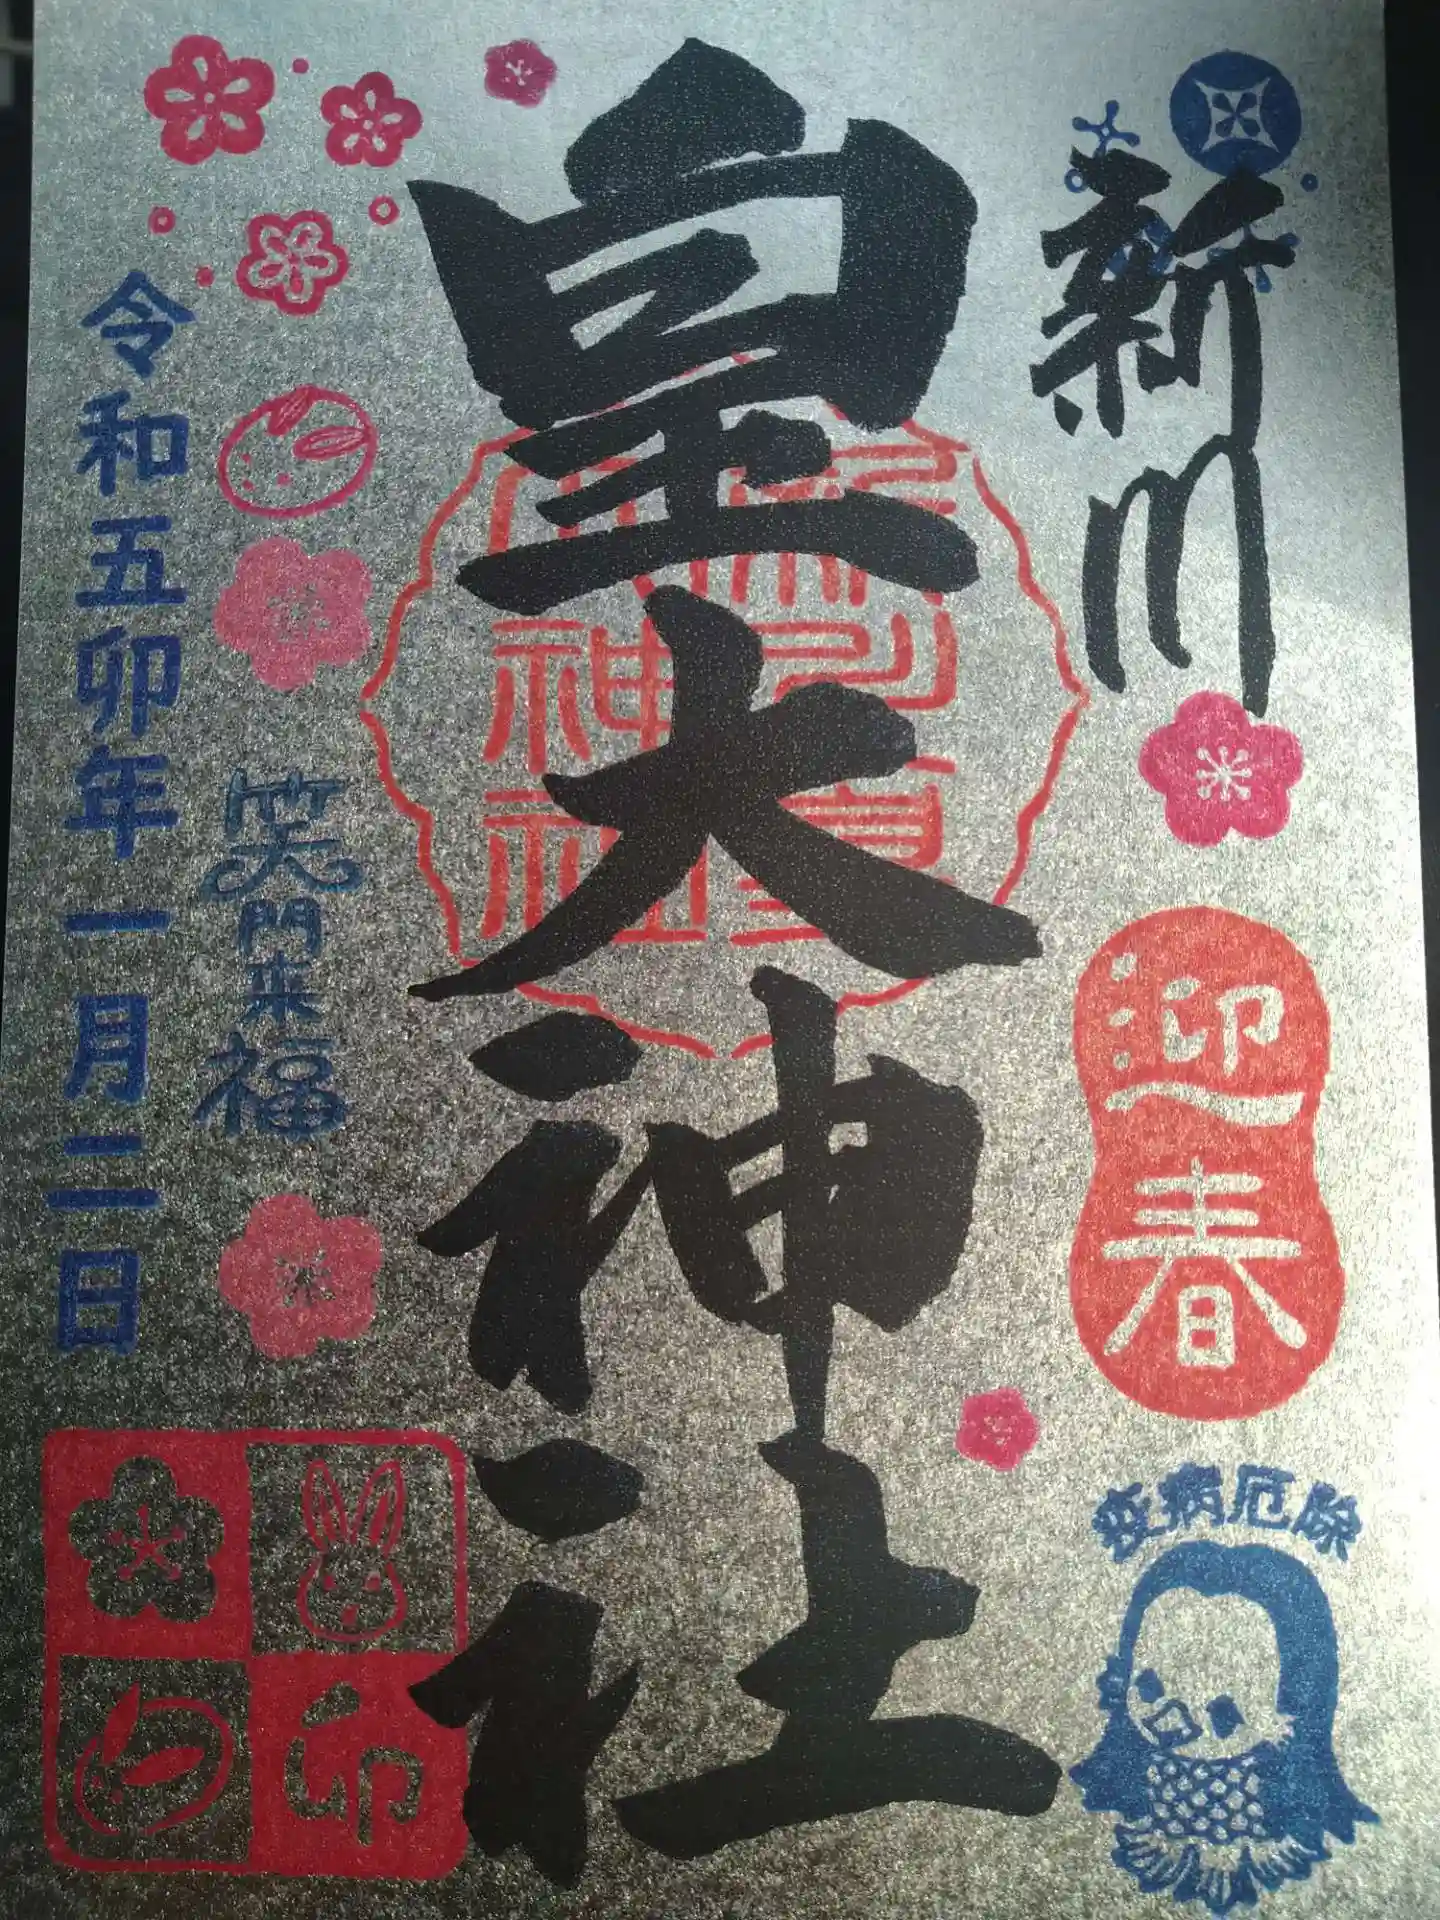 新川
皇大神社
迎春
疫病厄除
令和五卯年一月二日
笑門来福
卯